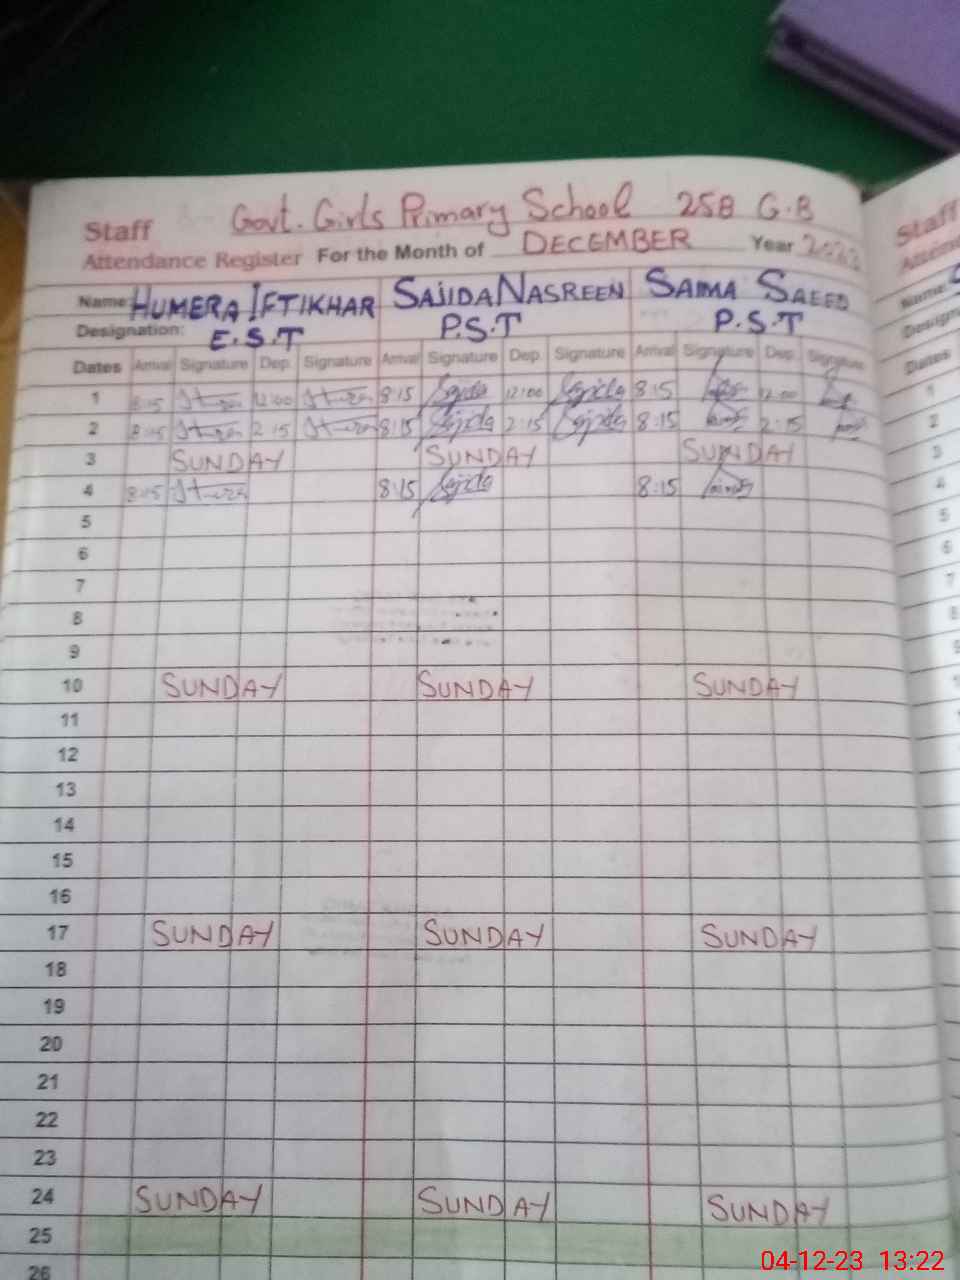 Govt. Girls Primary School 258 G.B
Staff
Attendance Register For the Month of DECEMBER Year 2023
Name: HUMERA IFTIKHAR SAJIDA NASREEN SAIMA SAEED
Designation: E.S.T P.S.T P.S.T
Dates Arrival Signature Dep. Signature Arrival Signature Dep. Signature Arrival Signature Dep. Signature
1 8:15 12:00 8:15 Sajida 12:00 Sajida 8:15 12:00
2 8:15 2:15 8:15 Sajida 2:15 Sajida 8:15 2:15
3 SUNDAY SUNDAY SUNDAY
4 8:15 8:15 Sajida 8:15
5
6
7
8
9
10 SUNDAY SUNDAY SUNDAY
11
12
13
14
15
16
17 SUNDAY SUNDAY SUNDAY
18
19
20
21
22
23
24 SUNDAY SUNDAY SUNDAY
25
26
Staff
Name:
Dates
1
2
3
4
5
6
7
8
04-12-23 13:22